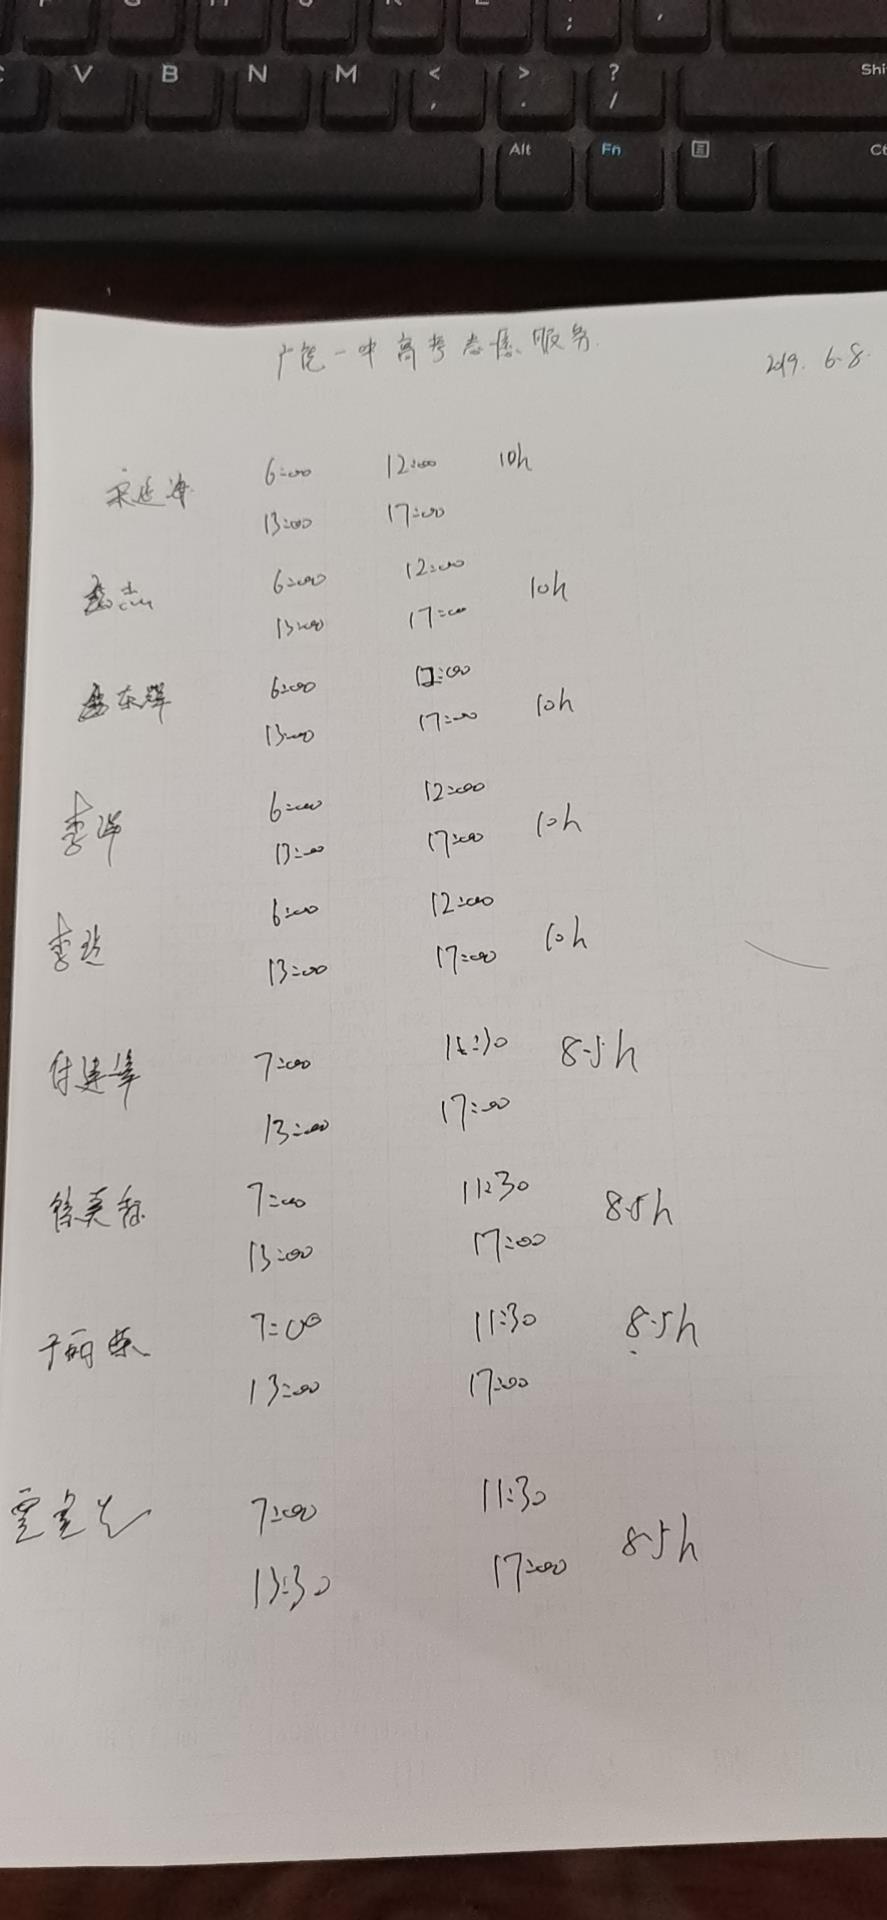 V B N M < > ? Shi
, . /
Alt Fn Ct
广饶一中高考志愿服务
2019. 6.8.
宋延海 6:00 12:00 10h
13:00 17:00
6:00 12:00 10h
13:00 17:00
6:00 12:00 10h
13:00 17:00
李洋 6:00 12:00 10h
13:00 17:00
李 6:00 12:00 10h
13:00 17:00
付建峰 7:00 11:30 8.5h
13:00 17:00
徐美 7:00 11:30 8.5h
13:00 17:00
于丽荣 7:00 11:30 8.5h
13:00 17:00
7:00 11:30 8.5h
13:30 17:00